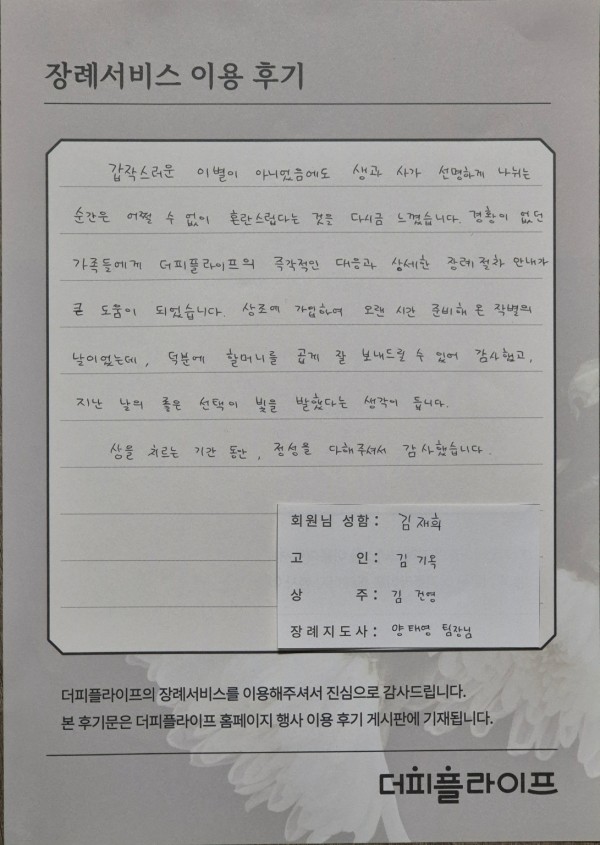 장례서비스 이용 후기
갑작스러운 이별이 아니었음에도 생과 사가 선명하게 나뉘는
순간은 어쩔 수 없이 혼란스럽다는 것을 다시금 느꼈습니다. 경황이 없던
가족들에게 더피플라이프의 즉각적인 대응과 상세한 장례 절차 안내가
큰 도움이 되었습니다. 상조에 가입하여 오랜 시간 준비해 온 작별의
날이었는데, 덕분에 할머니를 곱게 잘 보내드릴 수 있어 감사했고,
지난 날의 좋은 선택이 빛을 발했다는 생각이 듭니다.
상을 치르는 기간 동안, 정성을 다해주셔서 감사했습니다.
회원님 성함: 김재희
고 인: 김기옥
상 주: 김건영
장례지도사: 양태영 팀장님
더피플라이프의 장례서비스를 이용해주셔서 진심으로 감사드립니다.
본 후기문은 더피플라이프 홈페이지 행사 이용 후기 게시판에 기재됩니다.
더피플라이프